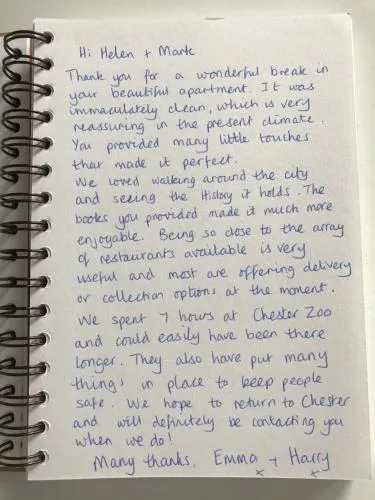 Hi Helen + Mark
Thank you for a wonderful break in
your beautiful apartment. It was
immaculately clean, which is very
reassuring in the present climate.
You provided many little touches
that made it perfect.
We loved walking around the city
and seeing the History it holds. The
books you provided made it much more
enjoyable. Being so close to the array
of restaurants available is very
useful and most are offering delivery
or collection options at the moment.
We spent 7 hours at Chester Zoo
and could easily have been there
longer. They also have put many
things in place to keep people
safe. We hope to return to Chester
and will definitely be contacting you
when we do!
Many thanks, Emma + Harry
x x